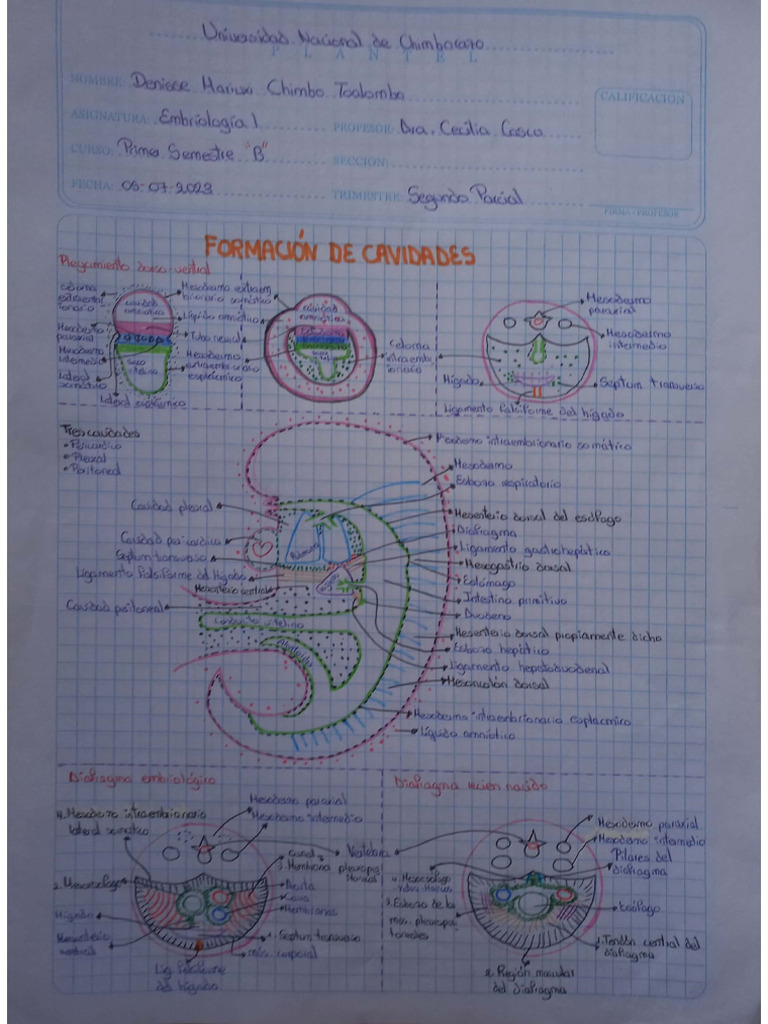 Universidad Nacional de Chimborazo
PLANTEL
NOMBRE: Deniece Chimbo Toalombo
CALIFICACIÓN
ASIGNATURA: Embriología 1 PROFESOR: Dra. Cecilia Casco
CURSO: Primer Semestre "B" SECCIÓN:
FECHA: 05-07-2023 TRIMESTRE: Segundo Parcial
FIRMA - PROFESOR
FORMACIÓN DE CAVIDADES
Plegamiento dorso ventral
Celoma extraembrionario
Cavidad amniótica
Mesodermo extraembrionario somático
Líquido amniótico
Tubo neural
Mesodermo paraxial
Mesodermo intermedio
Lateral somático
Lateral esplácnico
Saco vitelino
Mesodermo extraembrionario esplácnico
Cavidad amniótica
Celoma intraembrionario
Mesodermo paraxial
Mesodermo intermedio
Hígado
Septum transverso
Ligamento falsiforme del hígado
Tres cavidades
• Pericardica
• Pleural
• Peritoneal
intraembrionario somático
Mesodermo
Esbozo respiratorio
Cavidad pleural
Mesenterio dorsal del esófago
Diafragma
Cavidad pericardica
Ligamento gastrohepático
Septum transverso
Mesogastrio dorsal
Ligamento Falsiforme del Hígado
Estómago
Mesenterio ventral
Intestino primitivo
Cavidad peritoneal
Duodeno
Mesenterio dorsal propiamente dicho
Conducto vitelino
Esbozo hepático
Alantoides
Ligamento hepatoduodenal
Mesocolón dorsal
Mesodermo intraembrionario esplacnico
Líquido amniótico
Diafragma embriológico
Mesodermo paraxial
Mesodermo intermedio
4. Mesodermo intraembrionario lateral somático
Vertebra
Membrana pleuroperitoneal
2. Mesoesofago
Aorta
Cava
Membranas
Hígado
Mesenterio ventral
1. Septum transverso
mús. corporal
Lig. falsiforme del hígado
Diafragma recien nacido
Mesodermo paraxial
Mesodermo intermedio
Pilares del diafragma
Esófago
1. Tendón central del diafragma
2. Región muscular del diafragma